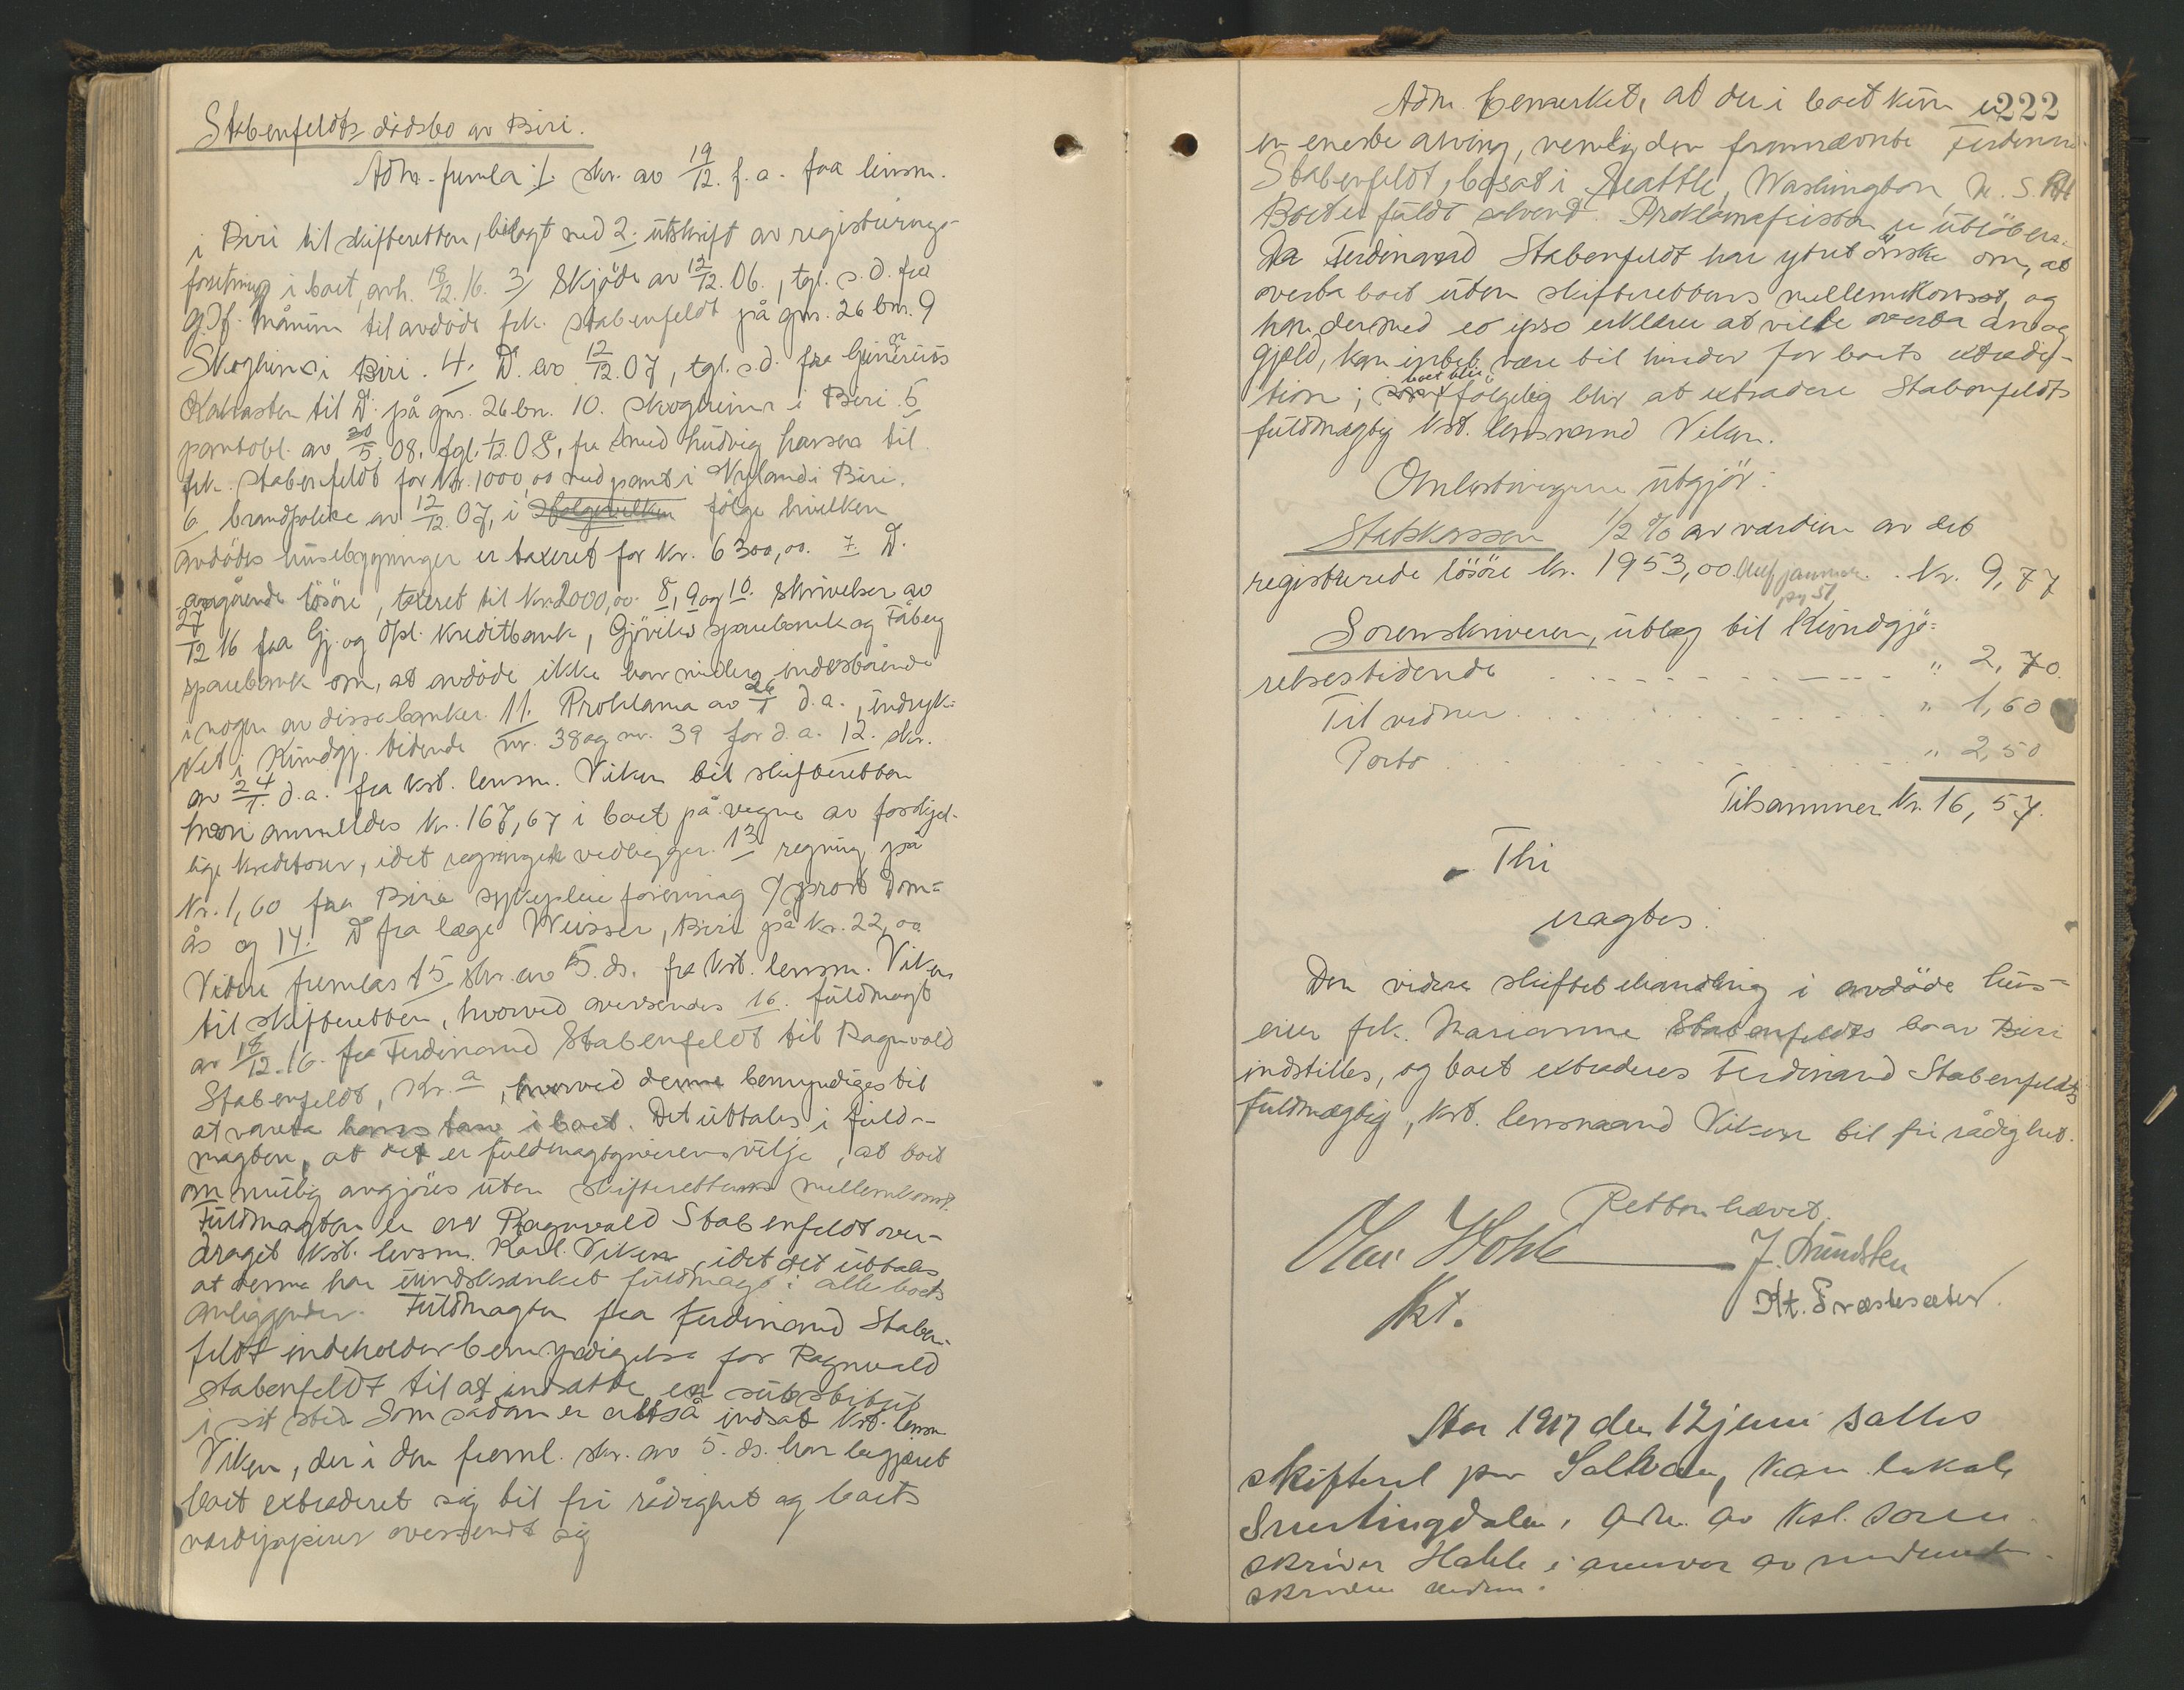 Stabenfeldts dødsbo av Biri.
Adm. fremla: 1. skr. av 19/12. f. a. fra lensm.
i Biri til skifteretten, bilagt med 2. utskrift av registrerings-
forretning i boet, avh. 18/12. 16. 3, Skjøde av 12/12. 06., tgl. s. d. fra
til avdøde frk. Stabenfeldt på gnr. 26 bnr. 9
Skogheim i Biri. 4. D. av 12/12. 07, tgl. s. d. fra
til D. på gnr. 26 bn. 10. Skogheim i Biri. 5
pantobl. av 30/5. 08. tgl. 1/12. 08, fra smed Ludvig Hansen til
frk. Stabenfeldt for kr. 1000,00 med pant i Nyland i Biri.
6 brandpolice av 12/12. 07, i følge hvilken
avdødes husebygninger er taxeret for kr. 6300,00. 7. D.
angående løsøre, taxeret til kr. 2000,00. 8, 9 og 10. Skrivelser av
27/12 16 fra Gj. og Opl. Kreditbank, Gjøviks sparebank og Fåberg
sparebank om, at avdøde ikke har midler indestående
i nogen av disse banker. 11. Proklama av 26/1 d. a., indryk-
ket i Kundgj. tidende nr. 38 og nr. 39 for d. a. 12. skr.
av 24/1. d. a. fra kst. lensm. Viken til skifteretten
hvori anmeldes kr. 167,67 i boet på vegne av forskjel-
lige kreditorer, idet regningene vedlægger. 13 regning på
Kr. 1,60 fra Biri sykepleieforening v/ prost Dom-
ås og 14. D fra læge Weisser, Biri på kr. 22,00
Videre fremlas 15 skr. av 5. ds. fra kst. lensm. Viken
til skifteretten, hvorved oversendes 16. fuldmagt
av 18/12. 16. fra Ferdinand Stabenfeldt til Ragnvald
Stabenfeldt, Kr.a, hvorved denne bemyndiges til
at vareta hans tarv i boet. Det uttales i fuld-
magten, at det er fuldmagtsgiverens vilje, at boet
om mulig avgjøres uten skifterettens mellemkomst.
Fuldmagten er av Ragnvald Stabenfeldt over-
draget kst. lensm. Karl Viken, idet det uttales
at denne har uindskrænket fuldmagt i alle boets
anliggender. Fuldmagten fra Ferdinand Staben-
feldt indeholder bemyndigelse for Ragnvald
Stabenfeldt til at indsætte en substitut
i sit sted. Som sådan er altså indsat kst. lensm.
Viken, der i den freml. skr. av 5. ds. har begjæret
boet extraderet sig til fri rådighet og boets
værdipapirer oversendt sig
222
Adm. bemerket, at der i boet kun er
en eneste arving, nemlig den fornævnte Ferdinand
Stabenfeldt, bosat i Seattle, Washington, U. S. A.
Boet er fuldt solvend. Proklamafristen er utløben.
Da Ferdinand Stabenfeldt har ytret ønske om, at
overta boet uten skifterettens mellemkomst, og
han dermed eo ipso erklærer at ville overta arv og
gjæld, kan intet være til hinder for boets extradi-
tion; boet blir følgelig blir at extradere Stabenfeldts
fuldmægtig kst. lensmand Viken.
Omkostningerne utgjør:
Statskassen 1/2 % av værdien av det
registrerede løsøre kr. 1953,00. . Kr. 9,77
Sorenskriveren, utlæg til Kundgjø-
relsestidende . . . . . . . . . " 2,70.
Til vidner . . . . . . . . . " 1,60
Porto . . . . . . . . . " 2,50
Tilsammen Kr. 16,57.
Thi
eragtes:
Den videre skiftebehandling i avdøde hus-
eier frk. Marianne Stabenfeldts bo av Biri
indstilles, og boet extraderes Ferdinand Stabenfeldts
fuldmægtig, kst. lensmand Viken til fri rådighet.
Retten hævet.
kst.
Aar 1917 den 12 juni sattes
skifteret paa Solbakken, kan. lokale
Snertingdalen, adm. av kst. soren-
skriver i nærvær av nedenunder-
skrevne vidner.